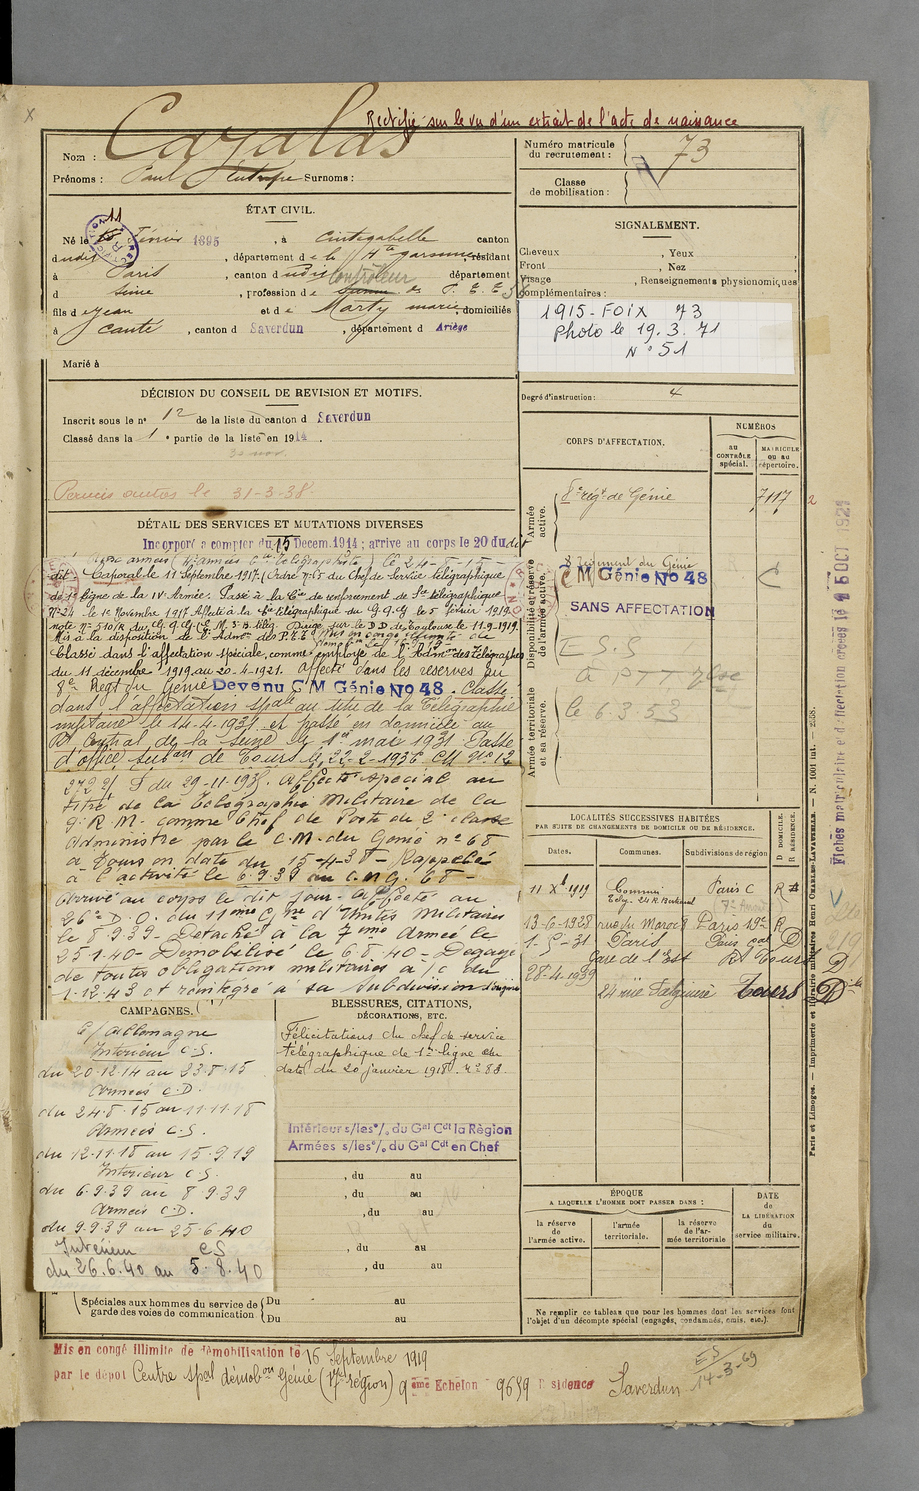 Rectifié sur le vu d'un extrait de l'acte de naissance
Nom : Cazalas
Prénoms : Paul Eutrope Surnoms :
Numéro matricule du recrutement : 73
Classe de mobilisation :
ÉTAT CIVIL.
Né le 11 Février 1895, à Cintegabelle canton
dudit, département de la Hte Garonne, résidant
à Paris, canton dudit Contrôleur département
d Seine, profession de des P. T. T.
fils de Jean et de Marty Marie, domiciliés
à Canté, canton d Saverdun, département d Ariège
Marié à
SIGNALEMENT.
Cheveux , Yeux ,
Front , Nez
Visage , Renseignements physionomiques
complémentaires :
1915 - FOIX 73
Photo le 19.3.71
N° 51
Degré d'instruction : 4
DÉCISION DU CONSEIL DE REVISION ET MOTIFS.
Inscrit sous le n° 12 de la liste du canton d Saverdun
Classé dans la 1e partie de la liste en 1914.
30 nov.
Permis autos le 31-3-38
CORPS D'AFFECTATION.
NUMÉROS
au CONTRÔLE spécial.
MATRICULE ou au répertoire.
Armée active.
8e régt de Génie 7117
Disponibilité et réserve de l'armée active.
8 Régiment du Génie
C M Génie No 48
SANS AFFECTATION
Armée territoriale et sa réserve.
à PTT
le 6.3.53
DÉTAIL DES SERVICES ET MUTATIONS DIVERSES
Incorporé à compter du 15 Décem. 1914 ; arrivé au corps le 20 dudit
dit Caporal le 11 Septembre 1917 (Ordre N°65 du Chef de Service Télégraphique
de 1e ligne de la IV Armée. Passé à la Cie de renforcement de Sie télégraphique
N°24 le 1e Novembre 1917 Affecté à la Cie télégraphique du G.Q.G le 5 février 1919
note N° 510/R du G.Q.G. Dirigé sur le D.D. de Toulouse le 11.9.1919.
Mis à la disposition de l'Admon des P.T.T
Classé dans l'affectation spéciale, comme employé de l'Admon des Télégraphes
du 11 décembre 1919 au 20.4.1921. Affecté dans les réserves au
8e Régt du Génie Devenu C M Génie No 48. Classé
dans l'affectation spale au titre de la Télégraphie
militaire le 14-4-1931 et passé en domicile au
Bt Central de la Seine le 1er mai 1931. Passé
d'office subon de Tours le 22-2-1936
du 29-11-193. Affecté spécial au
titre de la Télégraphie Militaire de la
9e R.M. comme Chef de Poste de 2e classe
administré par le C.M. du Génie n° 68
à Tours en date du 15-4-38 - Rappelé
à l'activité le 6.9.39 au C.M.G. 68 -
Arrivé au corps le dit jour - Affecté au
26e D.O. du 11ème Gme d'Unités Militaires
le 8 9.39 - Détaché à la 7ème Armée le
25-1-40 - Démobilisé le 6 8.40 - Dégagé
de toutes obligations militaires à/c du
1-12-43 et réintégré à sa subdivision d'origine
LOCALITÉS SUCCESSIVES HABITÉES
PAR SUITE DE CHANGEMENTS DE DOMICILE OU DE RÉSIDENCE.
Dates. Communes. Subdivisions de région D DOMICILE. R RÉSIDENCE.
11 Xb 1919 Paris C R
13-6-1928 rue du Maroc 9 Paris 19e R
1-5-31 Paris Paris cal D
Gare de l'Est Rt Tours D
28-4-1939 Tours D
CAMPAGNES.
C/ Allemagne
Intérieur C.S.
du 20.12.14 au 23.8.15
Armées C.D.
du 24.8.15 au 11.11.18
Armées C.S.
du 12.11.18 au 15.9.19
Intérieur C.S.
du 6.9.39 au 8 9 39
Armées C.D.
du 9.9.39 au 25.6.40
Intérieur CS
du 26.6.40 au 5.8.40
BLESSURES, CITATIONS, DÉCORATIONS, ETC.
Félicitations du chef de service
télégraphique de 1re ligne en
date du 20 janvier 1918. N° 83.
Intérieur s/les o/o du Gal Cdt la Région
Armées s/les o/o du Gal Cdt en Chef
, du au
, du au
, du au
, du au
, du au
Spéciales aux hommes du service de garde des voies de communication
Du au
Du au
ÉPOQUE
A LAQUELLE L'HOMME DOIT PASSER DANS :
la réserve de l'armée active.
l'armée territoriale.
la réserve de l'armée territoriale
DATE DE LA LIBÉRATION du service militaire.
Ne remplir ce tableau que pour les hommes dont les services font
l'objet d'un décompte spécial (engagés, condamnés, omis, etc.).
Mis en congé illimité de démobilisation le 16 Septembre 1919
par le dépôt Centre spal démobon Génie (17e région) 9ème Echelon 9659 Résidence Saverdun
ES
14-3-69
Paris et Limoges. — Imprimerie et librairie militaires Henri CHARLES-LAVAUZELLE. — N. 1001 int. — 2.58.
Fiches matriculaire et d'affectation créées le 1 5 OCT 1921